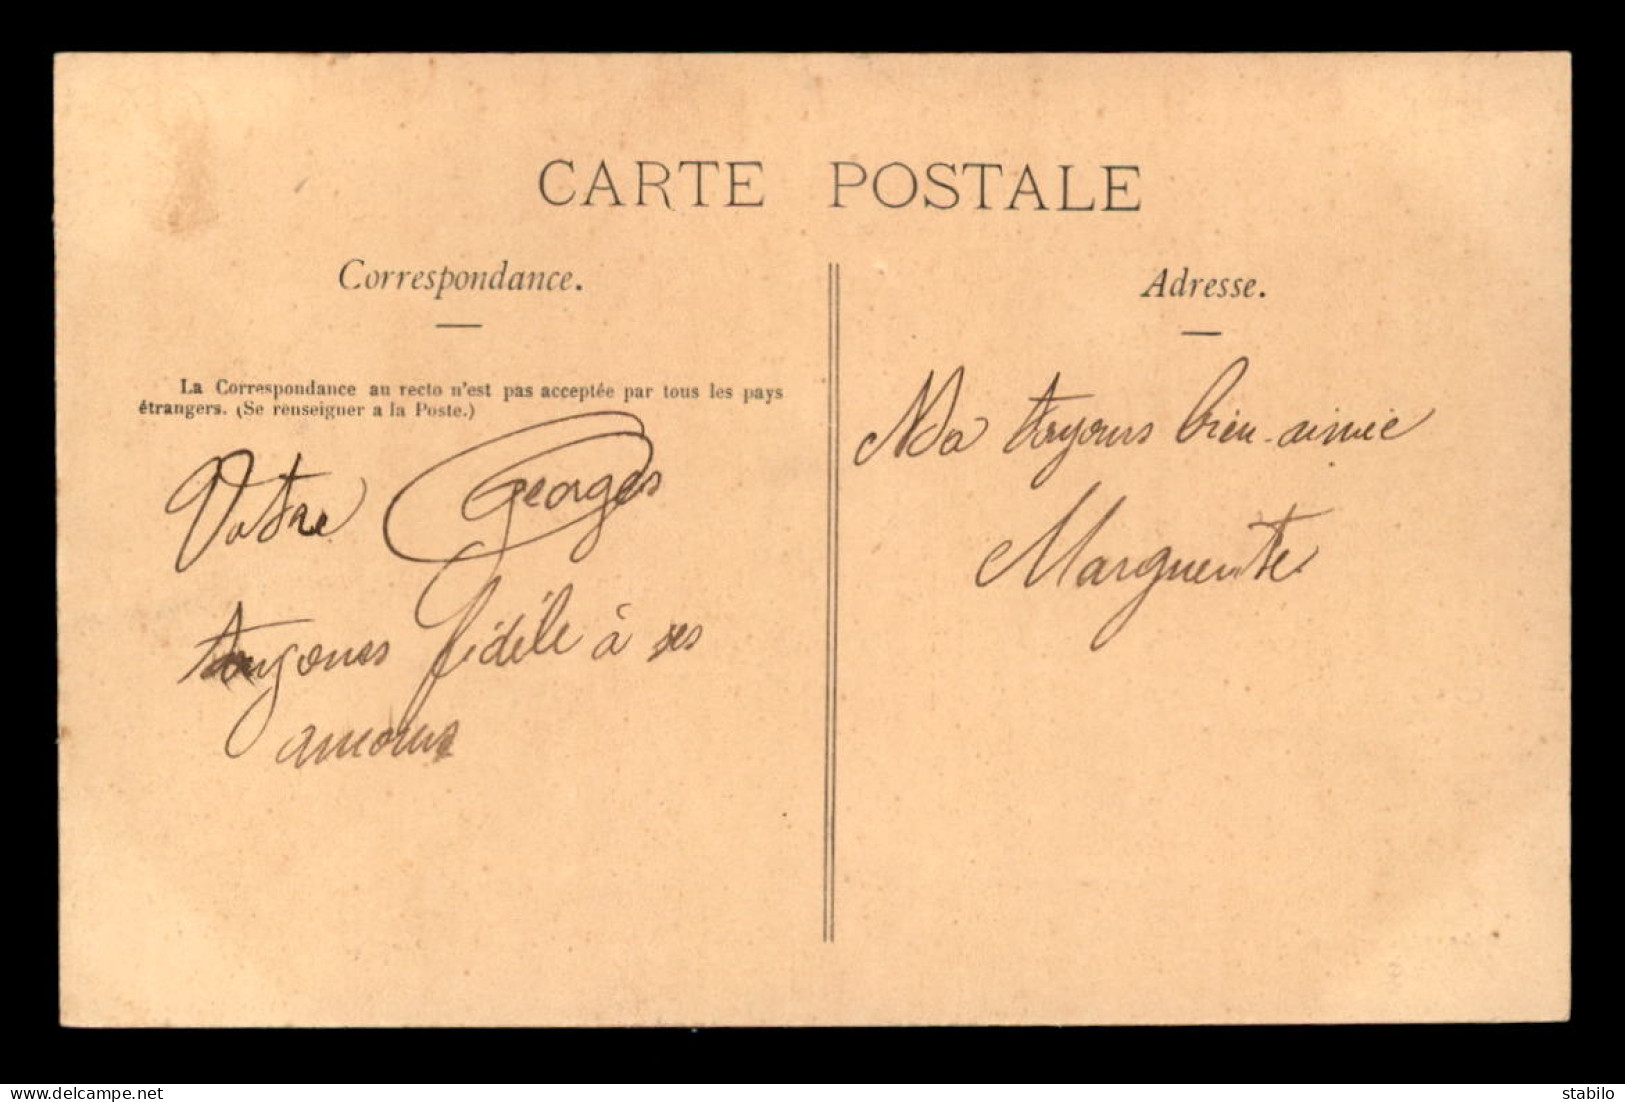 CARTE POSTALE
Correspondance.
La Correspondance au recto n'est pas acceptée par tous les pays
étrangers. (Se renseigner a la Poste.)
Votre Georges
toujours fidèle à ses
amours
Adresse.
Ma toujours bien-aimée
Marguerite
Delcampe.net
stabilo